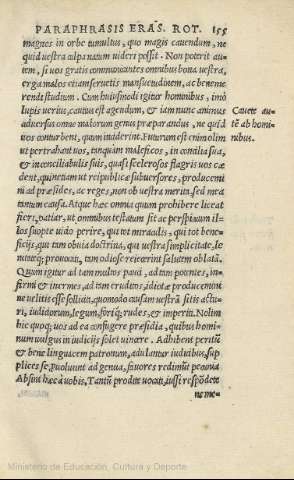 PARAPHRASIS ERAS. ROT. 155
magnos in orbe tumultus, quo magis cauendum, ne
quid uestra culpa natum uideri possit. Non poterit au-
tem, si uos gratis communicantes omnibus bona uestra,
erga malos etiam seruetis mansuetudinem, ac bene me
rendi studium. Cum huiusmodi igitur hominibus, imò
lupis uerius, cautius est agendum, & iam nunc animus
aduersus omne malorum genus præparandus, ne quid
uos conturbent, quum inciderint. Futurum est enim olim
ut pertrahant uos, tanquàm maleficos, in concilia sua,
& in conciliabulis suis, quasi scelerosos flagris uos cæ
dent, quinetiam ut reipublicæ subuersores, producemi
ni ad præsides, ac reges, non ob uestra merita, sed mea
tantum causa. Atque hæc omnia quum prohibere liceat
fieri, patiar, ut omnibus testatum sit ac perspicuum il-
los suopte uicio perire, qui tot miraculis, qui tot bene-
ficijs, qui tam obuia doctrina, qui uestra simplicitate, le
nitateq; prouocati, tam odiose reiecerint salutem oblatā.
Quum igitur ad tam multos pauci, ad tam potentes, in-
firmi & inermes, ad tam eruditos, idiotæ producemini
ne uelitis esse solliciti, quomodo causam uestrā sitis actu
ri, iudiciorum, legum, foriq; rudes, & imperiti. Nolim
hic quoq; uos ad ea confugere præsidia, quibus homi-
num uulgus in iudicijs solet uinere. Adhibent peritū
& bene linguacem patronum, adulantur iudicibus, sup
plices se prouoluunt ad genua, fauores redimūt pecunia
Absint hæc à uobis. Tantū prodite uocati, iussi respōdete
neme-
Cauete au-
tē ab homi-
nibus.
Ministerio de Educación, Cultura y Deporte